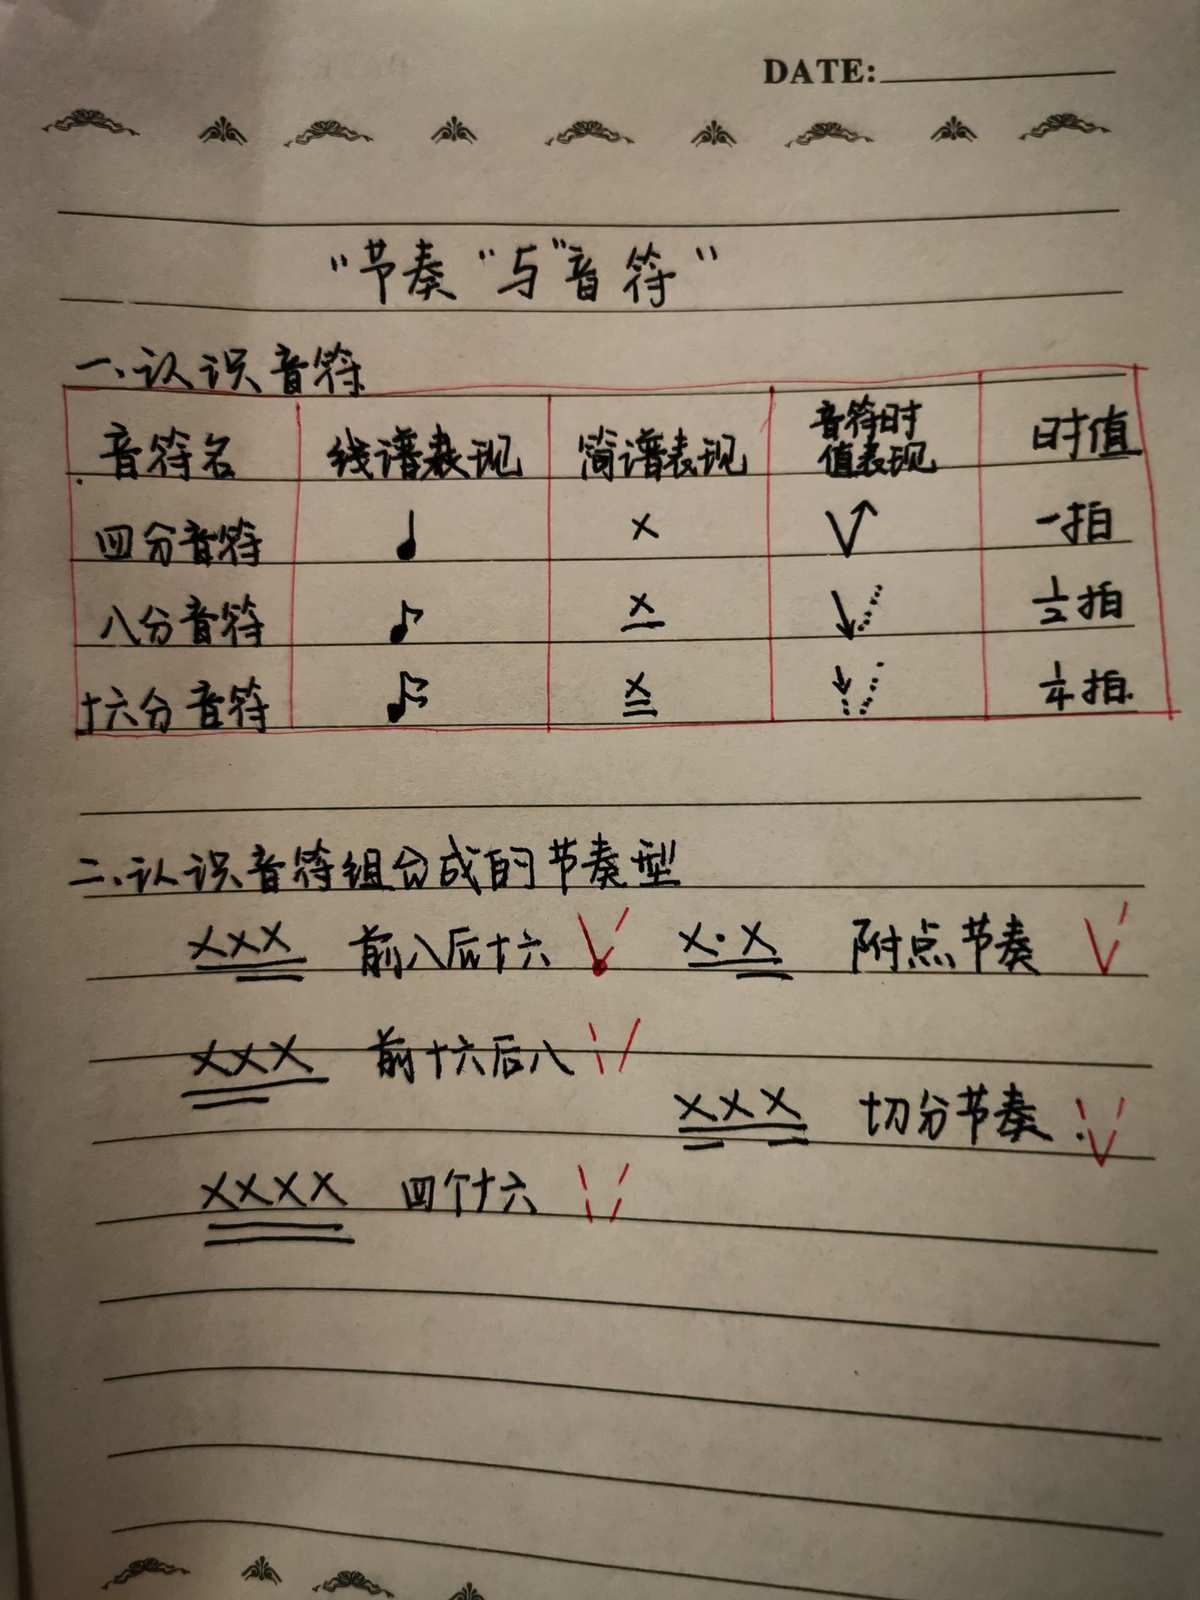 DATE:
“节奏“与”音符”
一、认识音符
音符名 线谱表现 简谱表现 音符时值表现 时值
四分音符 X 一拍
八分音符 X 1/2拍
十六分音符 X 1/4拍.
二、认识音符组合成的节奏型
XXX 前八后十六 X·X 附点节奏
XXX 前十六后八
XXX 切分节奏
XXXX 四个十六